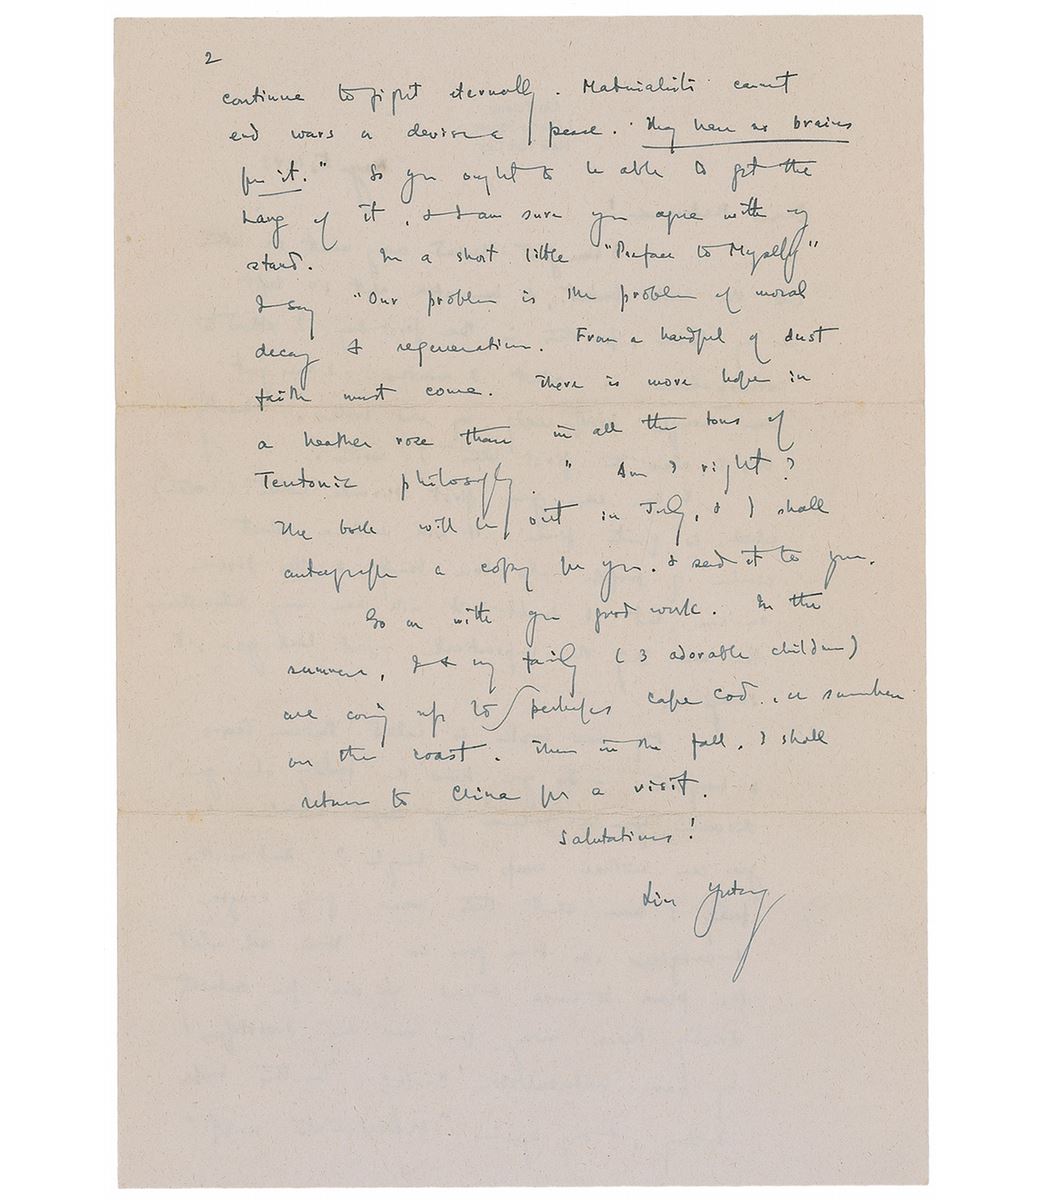 2
continue to fight eternally. Materialists cannot
end wars or devise a peace. They have no brains
for it." So you ought to be able to get the
hang of it, & I am sure you agree with my
stand. In a short little "Preface to Myself"
I say "Our problem is the problem of moral
decay & regeneration. From a handful of dust
faith must come. There is more hope in
a heather rose than in all the tons of
Teutonic philosophy." Am I right?
The book will be out in July, & I shall
autograph a copy for you. & send it to you.
Go on with your good work. In the
summer, I & my family (3 adorable children)
are coming up to perhaps Cape Cod, or somewhere
on the coast. Then in the fall, I shall
return to China for a visit.
Salutations!
Lin Yutang